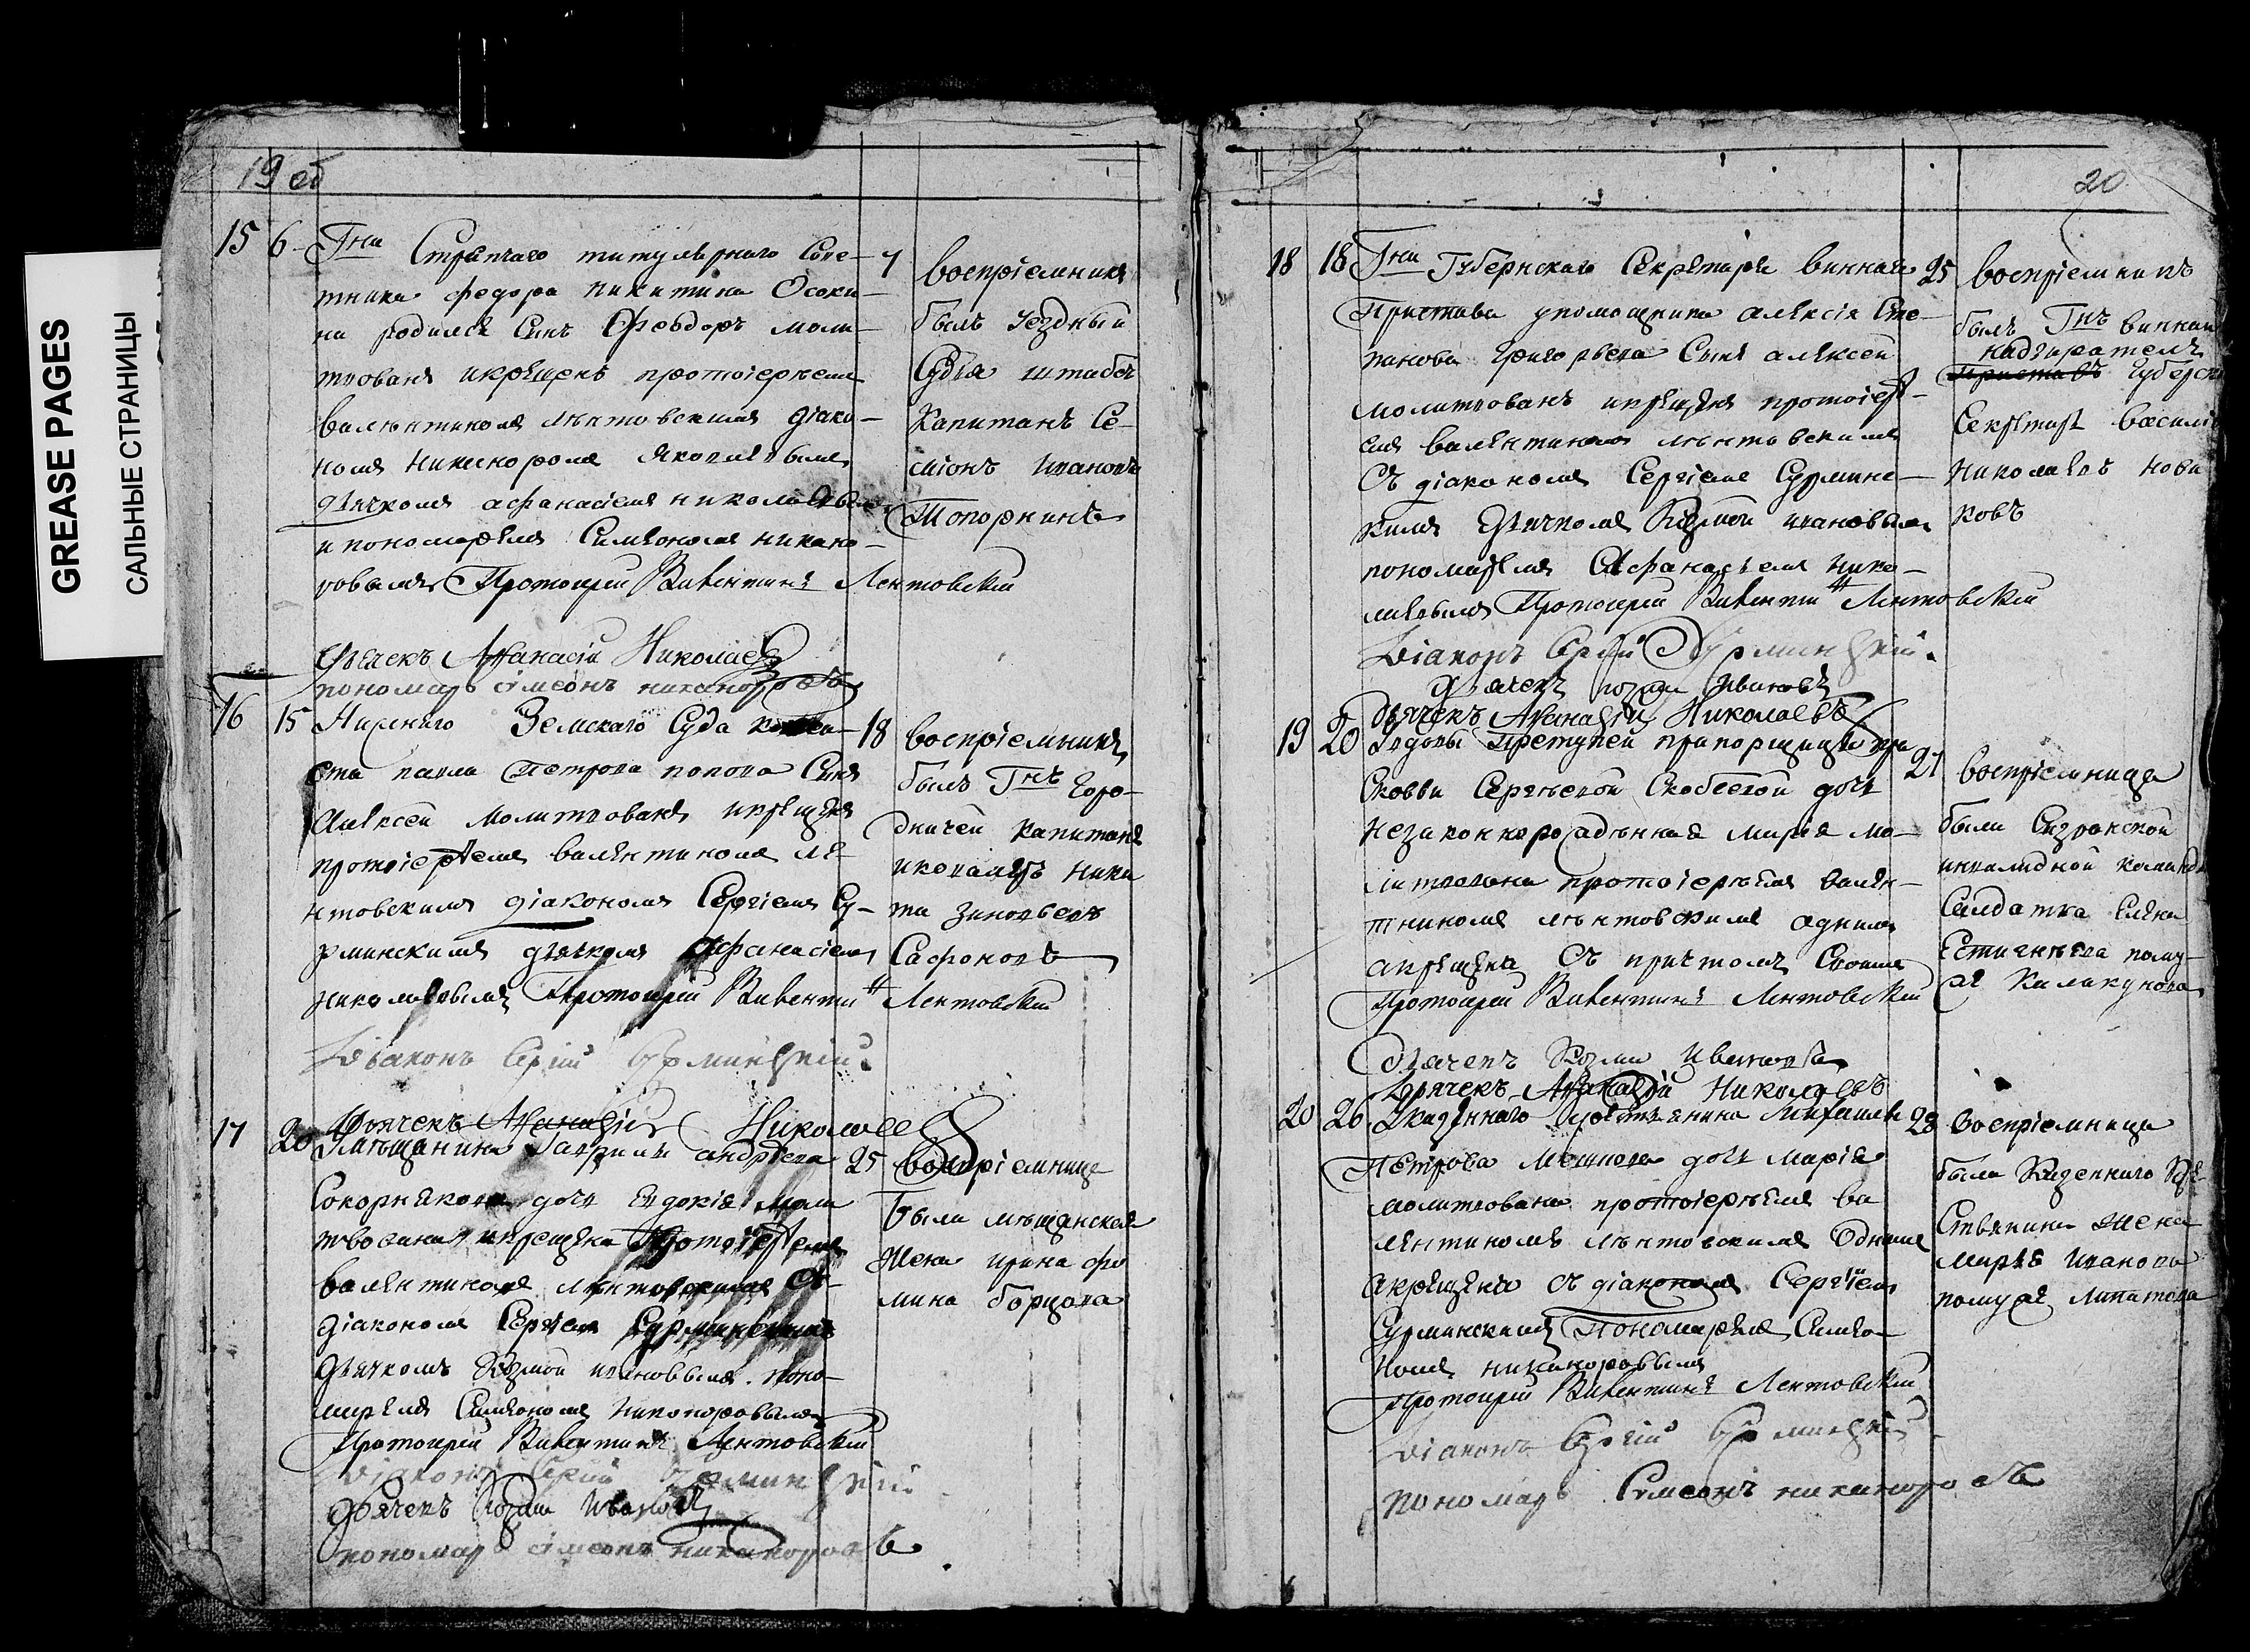 GREASE PAGES
САЛЬНЫЕ СТРАНИЦЫ
19 об
15 6 Гна Стряпчаго титулярнаго Сове-
тника федора никитина Осоки-
на родился Сынъ Феодоръ моли-
твованъ икрещенъ протоіереемъ
валентиномъ лентовскимъ діако-
номъ никифоромъ яковлевымъ
дьячкомъ афанасіемъ николаевымъ
и пономаремъ Симеономъ никано-
ровымъ Протоиерей Валентинъ Лентовский
7 воспріемникъ
былъ уездный
Судья штабсъ
Капитанъ Се-
міонъ ивановъ
Топорнинъ
Дьячекъ Афанасій Николаевъ
пономарь симеонъ никаноровъ
16 15 Нижняго Земскаго Суда
павла петрова попова Сынъ
Алексей молитвованъ икрещенъ
протоіереемъ валентиномъ ле-
нтовскимъ діакономъ Сергіемъ Су-
рминскимъ дьячкомъ Афанасіемъ
николаевымъ Протоиерей Валентинъ Лентовский
18 воспріемникъ
былъ Гнъ горо-
дничей капитанъ
икавалеръ ники
та зиновьевъ
Сафоновъ
Діаконъ Сергій Сурминскій
17 20 Дьячекъ Афанасій Николаевъ
мещанина Гаврилы андреева
дочь Евдокія моли
твована икрещена Протоіереемъ
валентиномъ лентовскимъ съ
діакономъ Сергіемъ Сурминскимъ
дьячкомъ Козмой ивановымъ поно-
маремъ Симеономъ Никаноровымъ
Протоиерей Валентинъ Лентовский
25 воспріемница
была мещанская
Жена ирина фо
мина борцова
діаконъ Сергій Сурминскій
Дьячекъ Козма Ивановъ
пономарь симеонъ никаноровъ
20
18 18 Гна Губернскаго Секретаря виннаго
Пристава упомощника алексія Сте-
панова григорьева Сынъ алексей
молитвованъ икрещенъ протоіере-
емъ валентиномъ лентовскимъ
Съ діакономъ Сергіемъ Сурминс-
кимъ Дьячкомъ Козмой ивановымъ
пономаремъ Афанасьемъ нико-
лаевымъ Протоиерей Валентинъ Лентовский
25 воспріемникъ
былъ Гнъ винный
надзиратель
Приставъ губерск
Секретарь Василі
Николаевъ нови
ковъ
Діаконъ Сергій Сурминскій
Дьячекъ козма Ивановъ
Дьячекъ Афанасій Николаевъ
19 20 Увдовы прапорщицы пра
Сковьи Сергеевой Скобеевой дочь
Незаконнорожденная марія мо-
литвована протоіереемъ вален-
тиномъ лентовскимъ аднимъ
акрещена Съ причтомъ Своимъ
Протоиерей Валентинъ Лентовский
27 воспріемница
была Сызранской
инвалидной команды
Салдатка Елена
Естигнеева пому-
же
Дьячекъ Козма Ивановъ
Дьячекъ Афанасій Николаевъ
20 26 Указеннаго крестьянина Михаила
Петрова дочь марія
молитвована протоіереемъ ва
лентиномъ лентовскимъ Однимъ
акрещена съ діакономъ Сергіемъ
Сурминскимъ Пономаремъ Симео-
номъ никаноровымъ
Протоиерей Валентинъ Лентовский
28 воспріемница
была Казеннаго кре-
Стьянина жена
марья иванова
помуже липатова
діаконъ Сергій Сурминскій
пономарь Симеонъ никаноровъ